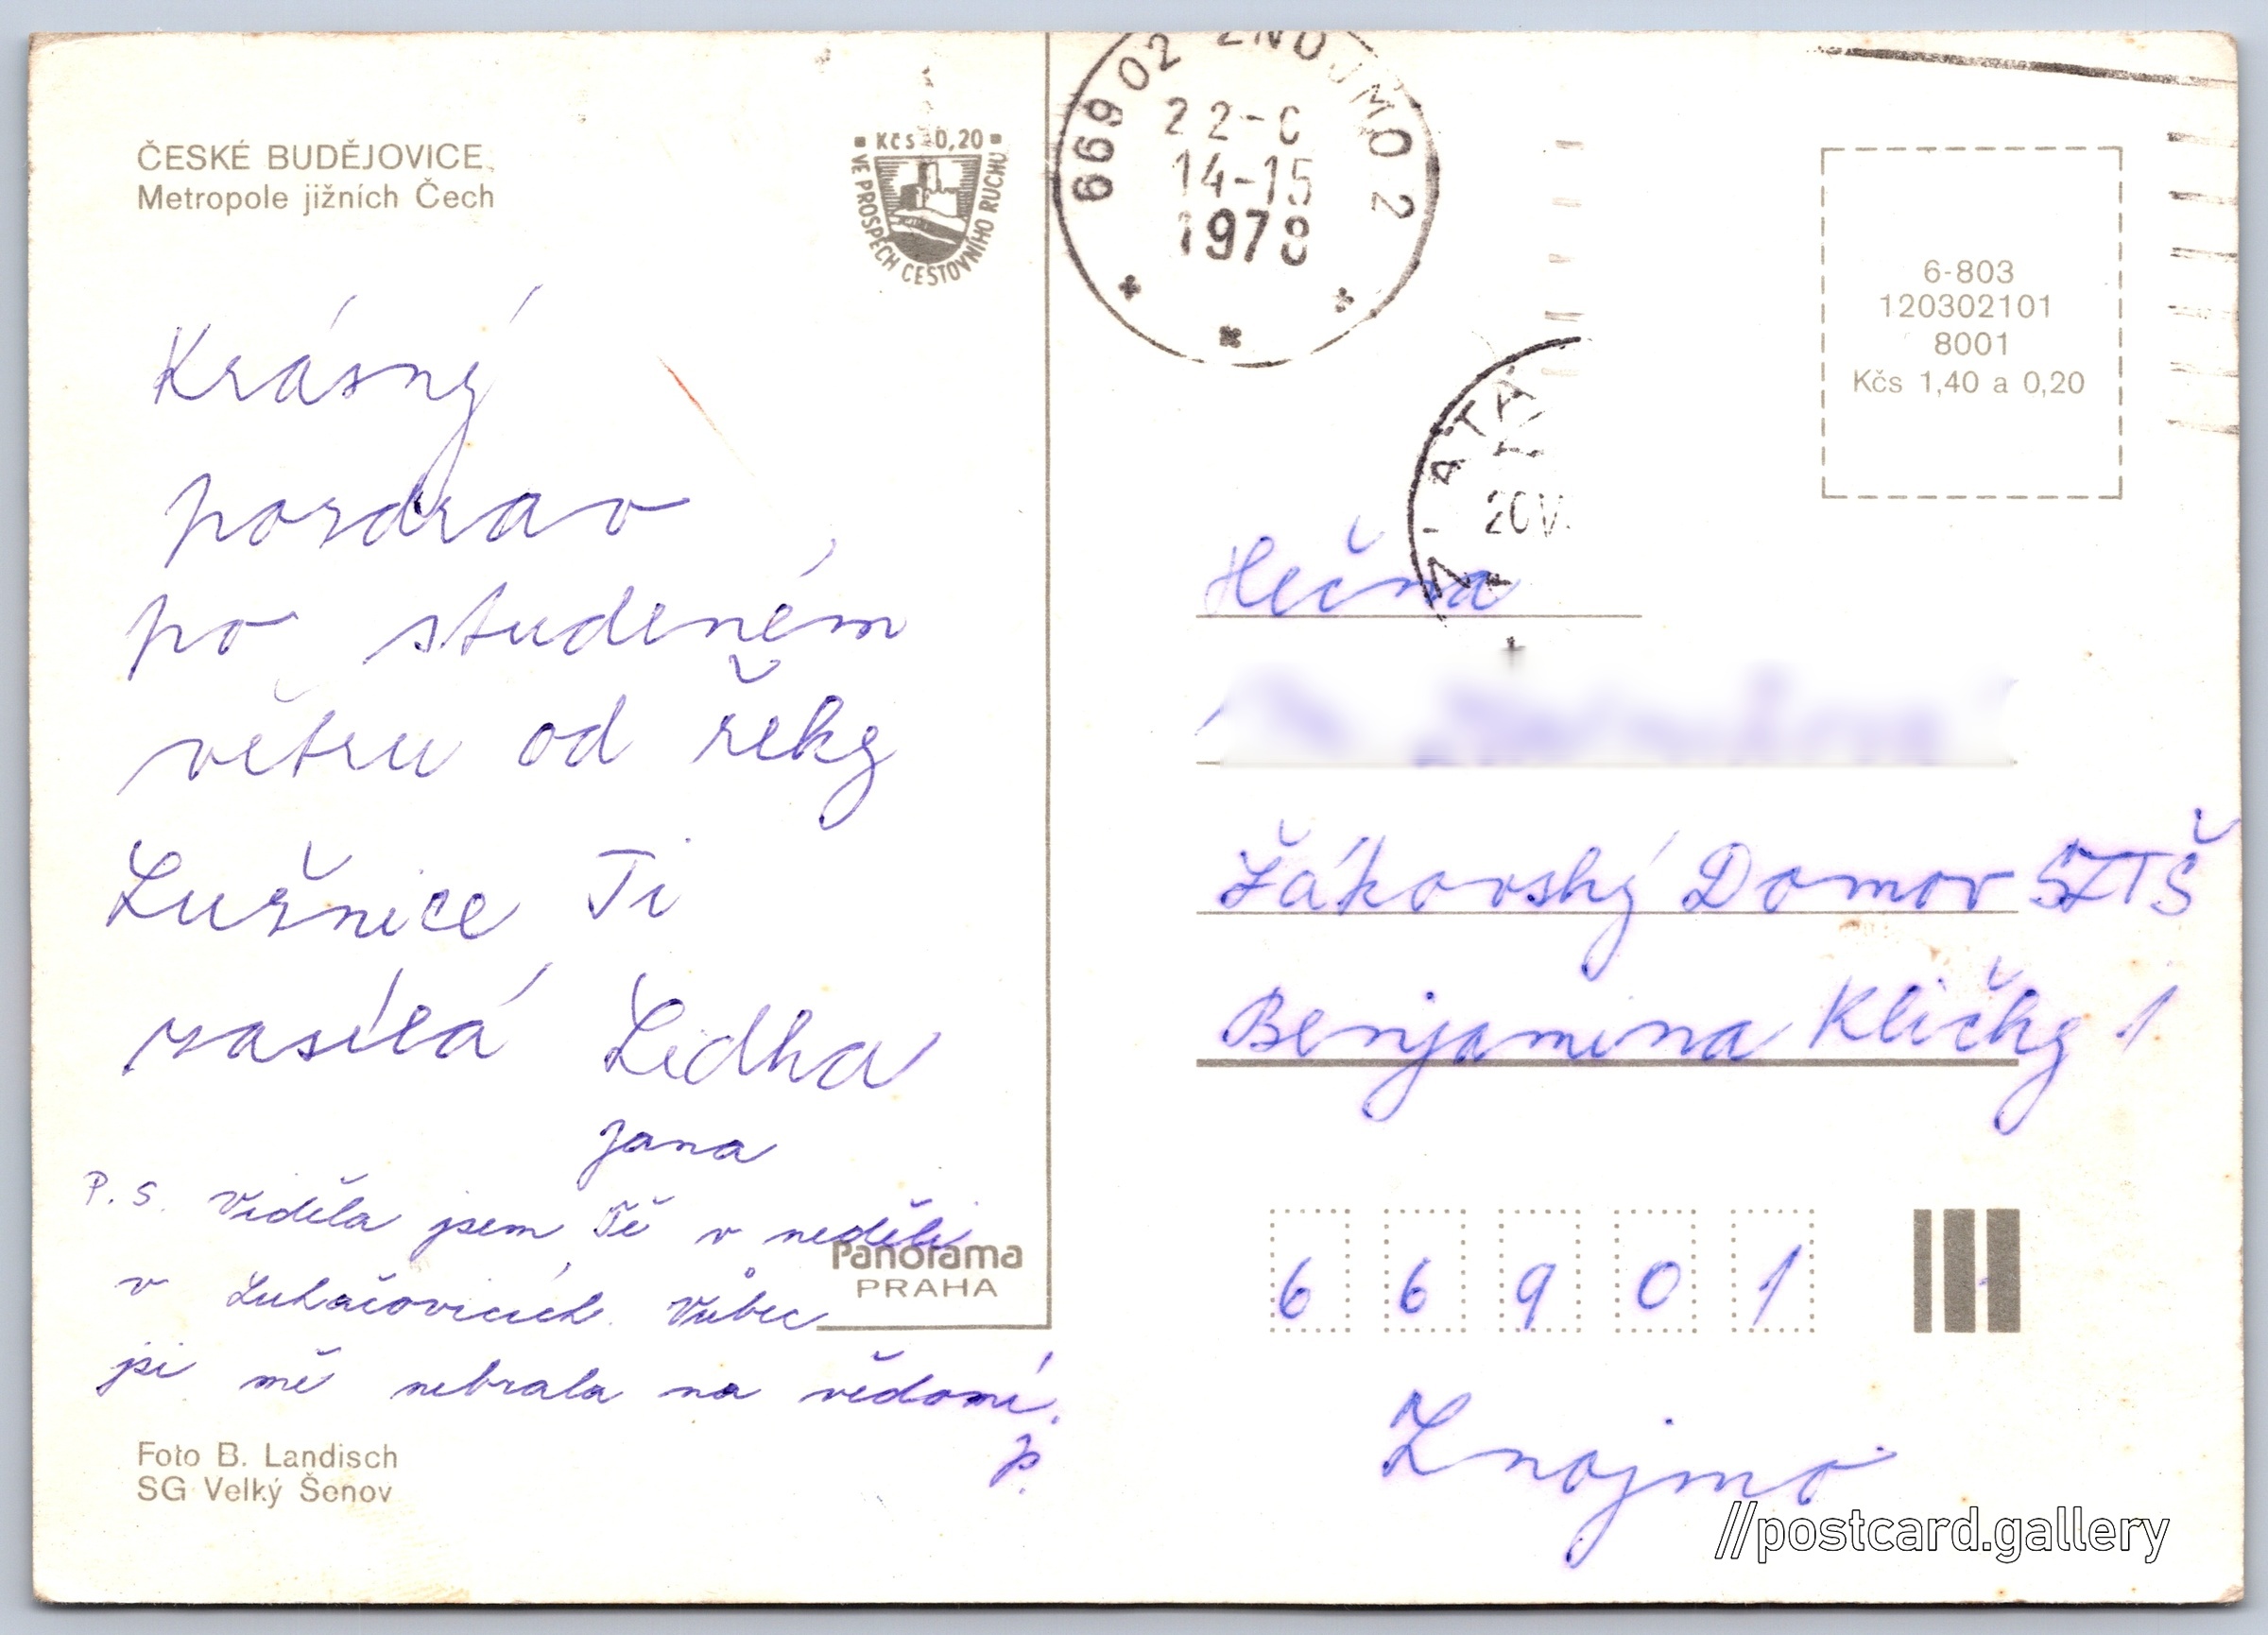 ČESKÉ BUDĚJOVICE,
Metropole jižních Čech
Kčs 0,20
VE PROSPĚCH CESTOVNÍHO RUCHU
Krásný
pozdrav
po studeném
větru od řeky
Lužnice Ti
zasílá Lidka
Jana
P.S. Viděla jsem Tě v neděli
v Luhačovicích. Vůbec
jsi mě nebrala na vědomí.
J.
Panorama
PRAHA
Foto B. Landisch
SG Velký Šenov
669 02 ZNOJMO 2
22-6
14-15
1978
6-803
120302101
8001
Kčs 1,40 a 0,20
Žákovský Domov SZTŠ
Benjamina Kličky 1
66901
Znojmo
//postcard.gallery